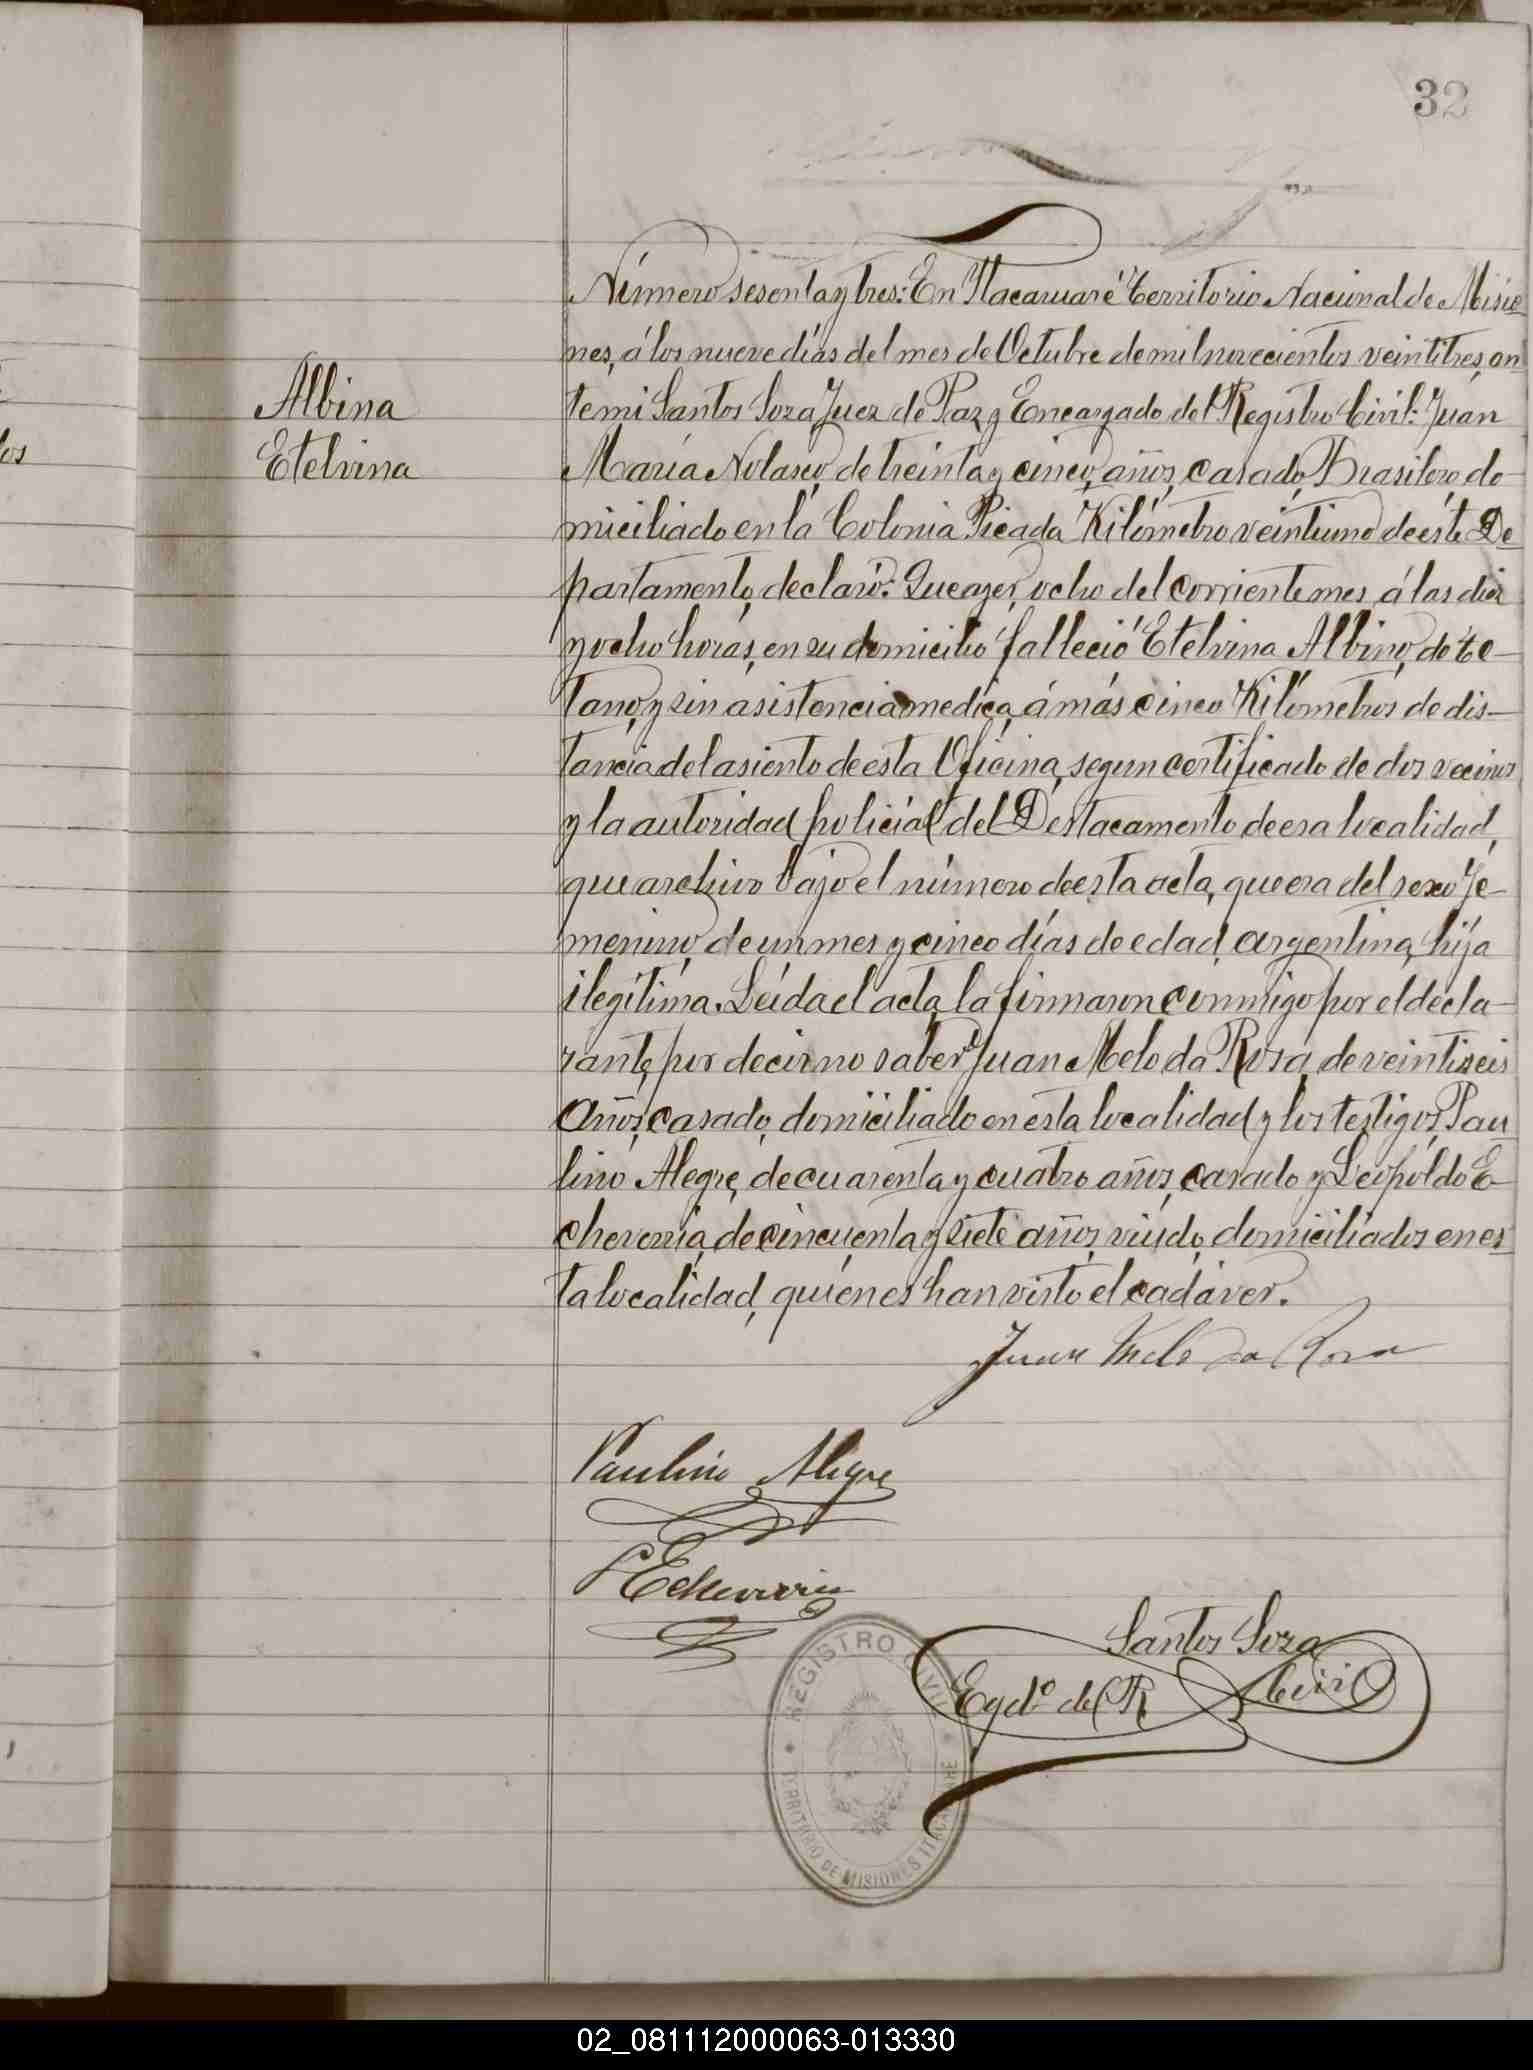 32
Número sesenta y tres: En Itacaruaré Territorio Nacional de Misio-
nes, á los nueve días del mes de Octubre de mil novecientos veintitres, an-
Albina
te mi Santos Soza Juez de Paz y Encargado del Registro Civil: Juan
Etelvina
María Nolasco, de treinta y cinco, años, casado, Brasilero do-
miciliado en la Colonia Picada Kilómetro veintiuno de éste De-
partamento, declaró: Que ayer, ocho del corriente mes, á las diez
y ocho horas, en su domicilio falleció Etelvina Albino, de te-
tano, y sin asistencia medica, á más cinco Kilómetros de dis-
tancia del asiento de esta Oficina, segun certificado de dos vecinos
y la autoridad policial del Destacamento de esa localidad,
que archivo bajo el número de esta acta, que era del sexo fe-
menino, de un mes y cinco días de edad, argentina, hija
ilegítima. Leída el acta, la firmaron conmigo por el decla-
rante, por decir no saber Juan Melo da Rosa, de veintiseis
años, casado, domiciliado en esta localidad y los testigos, Pau-
lino Alegre, de cuarenta y cuatro años, casado y Leopoldo E-
cheverria, de cincuenta y siete años, viudo, domiciliados en es-
ta localidad, quiénes han visto el cadáver.
Juan Melo da Rosa
Paulino Alegre
L Echeverria
Santos Soza
Egdo. del R Civil
REGISTRO CIVIL
TERRITORIO DE MISIONES ITACARUARE
02_081112000063-013330